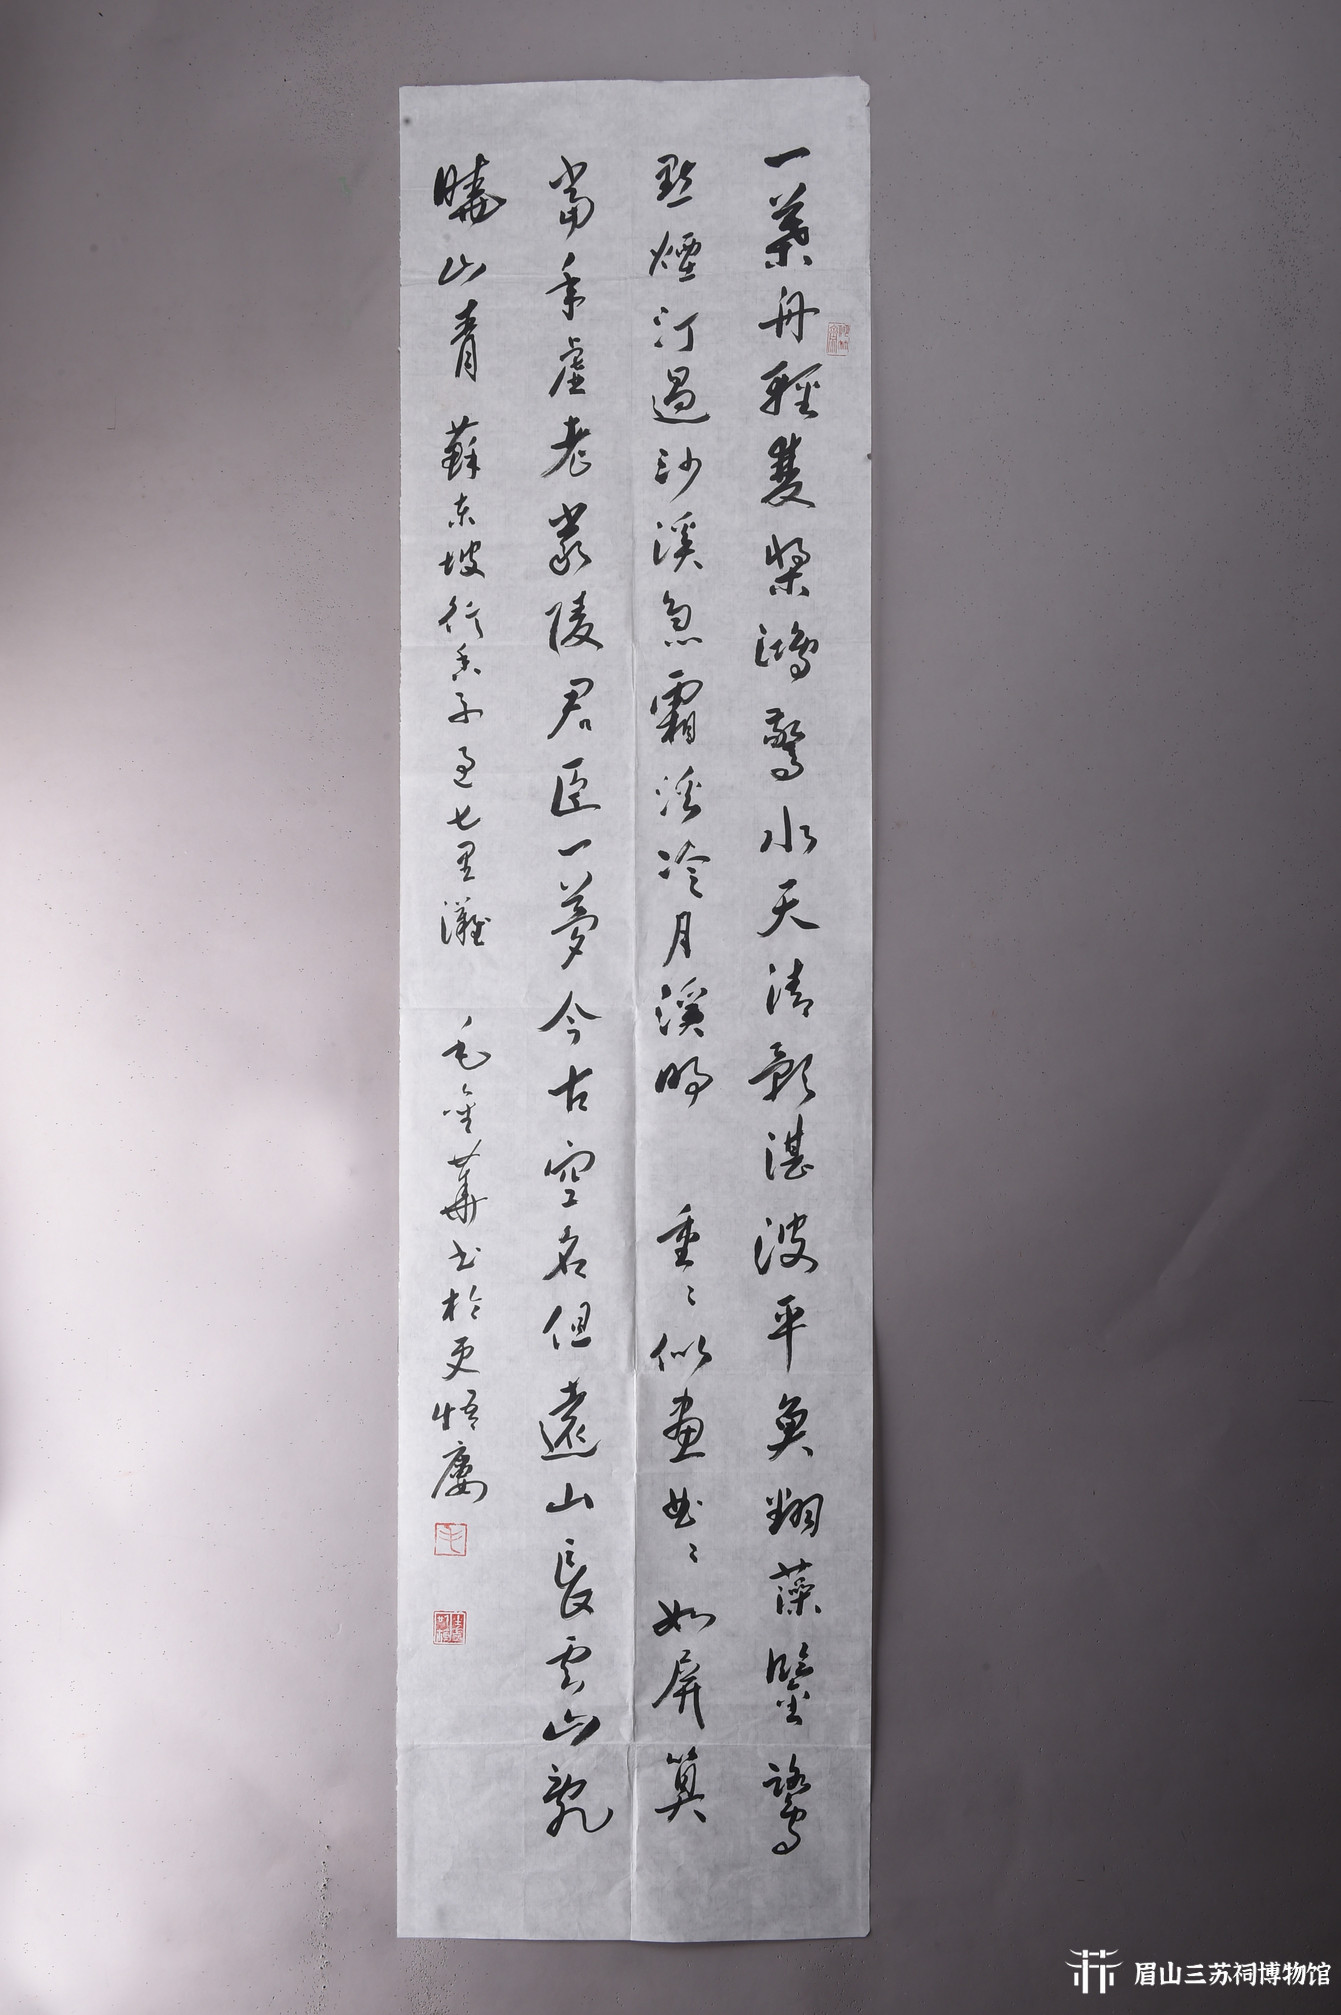 一葉舟輕雙槳鴻驚水天清影湛波平魚翔藻鑒鷺
點煙汀過沙溪急霜溪冷月溪明 重〻似畫曲〻如屏算
當年虛老嚴陵君臣一夢今古空名但遠山長雲山亂
曉山青 蘇東坡行香子過七里灘 毛金華書於更悟廔
眉山三苏祠博物馆